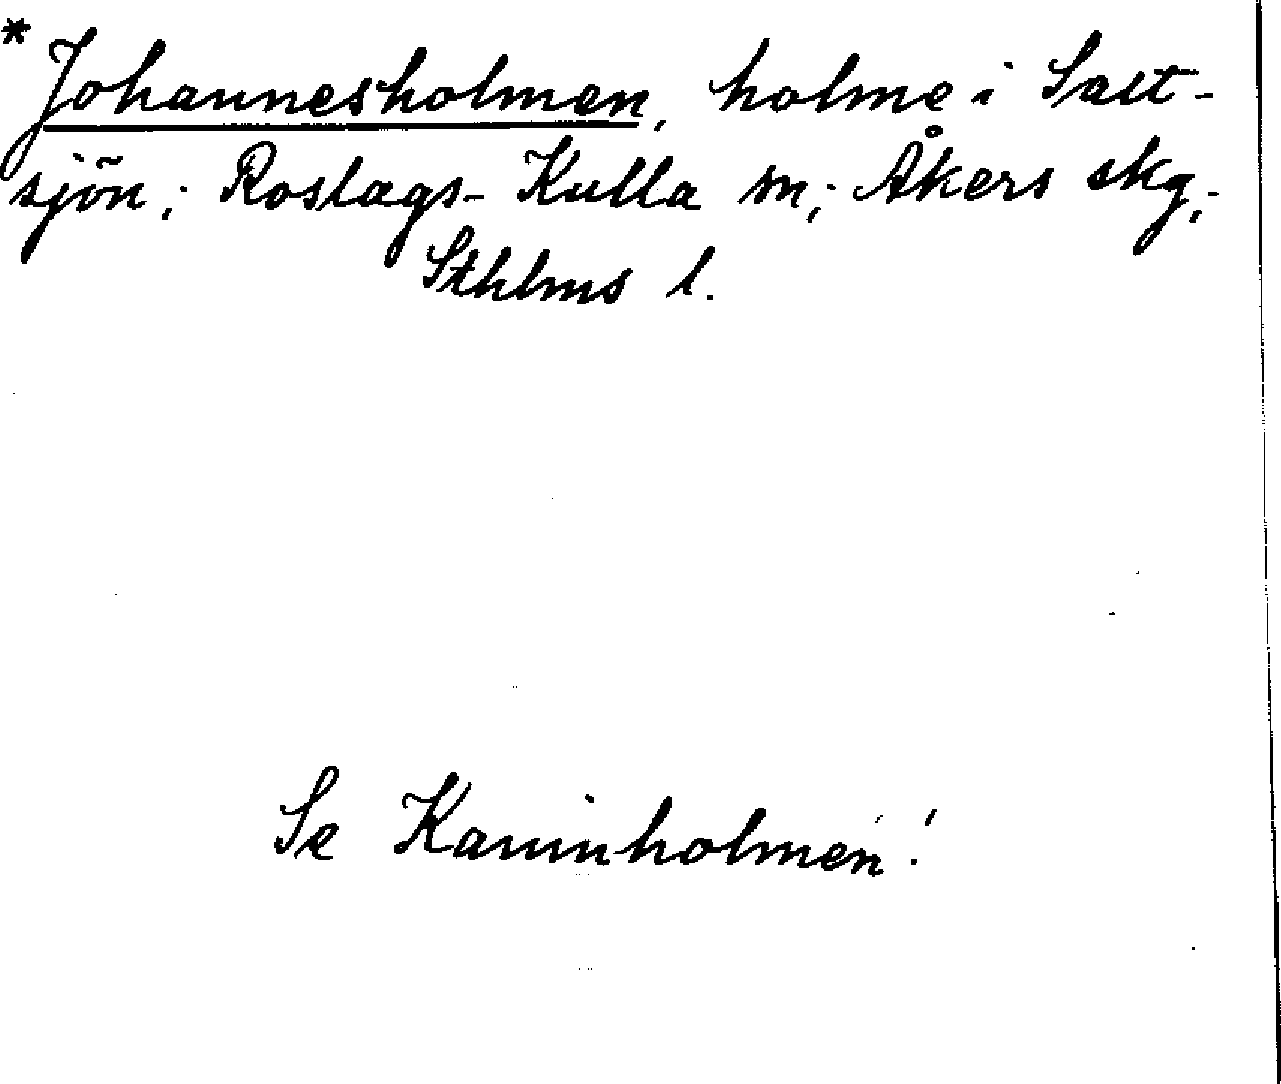 * Johannesholmen, holme i Salt-
sjön; Roslags-Kulla sn; Åkers skg,
Sthlms l.
Se Kaninholmen!